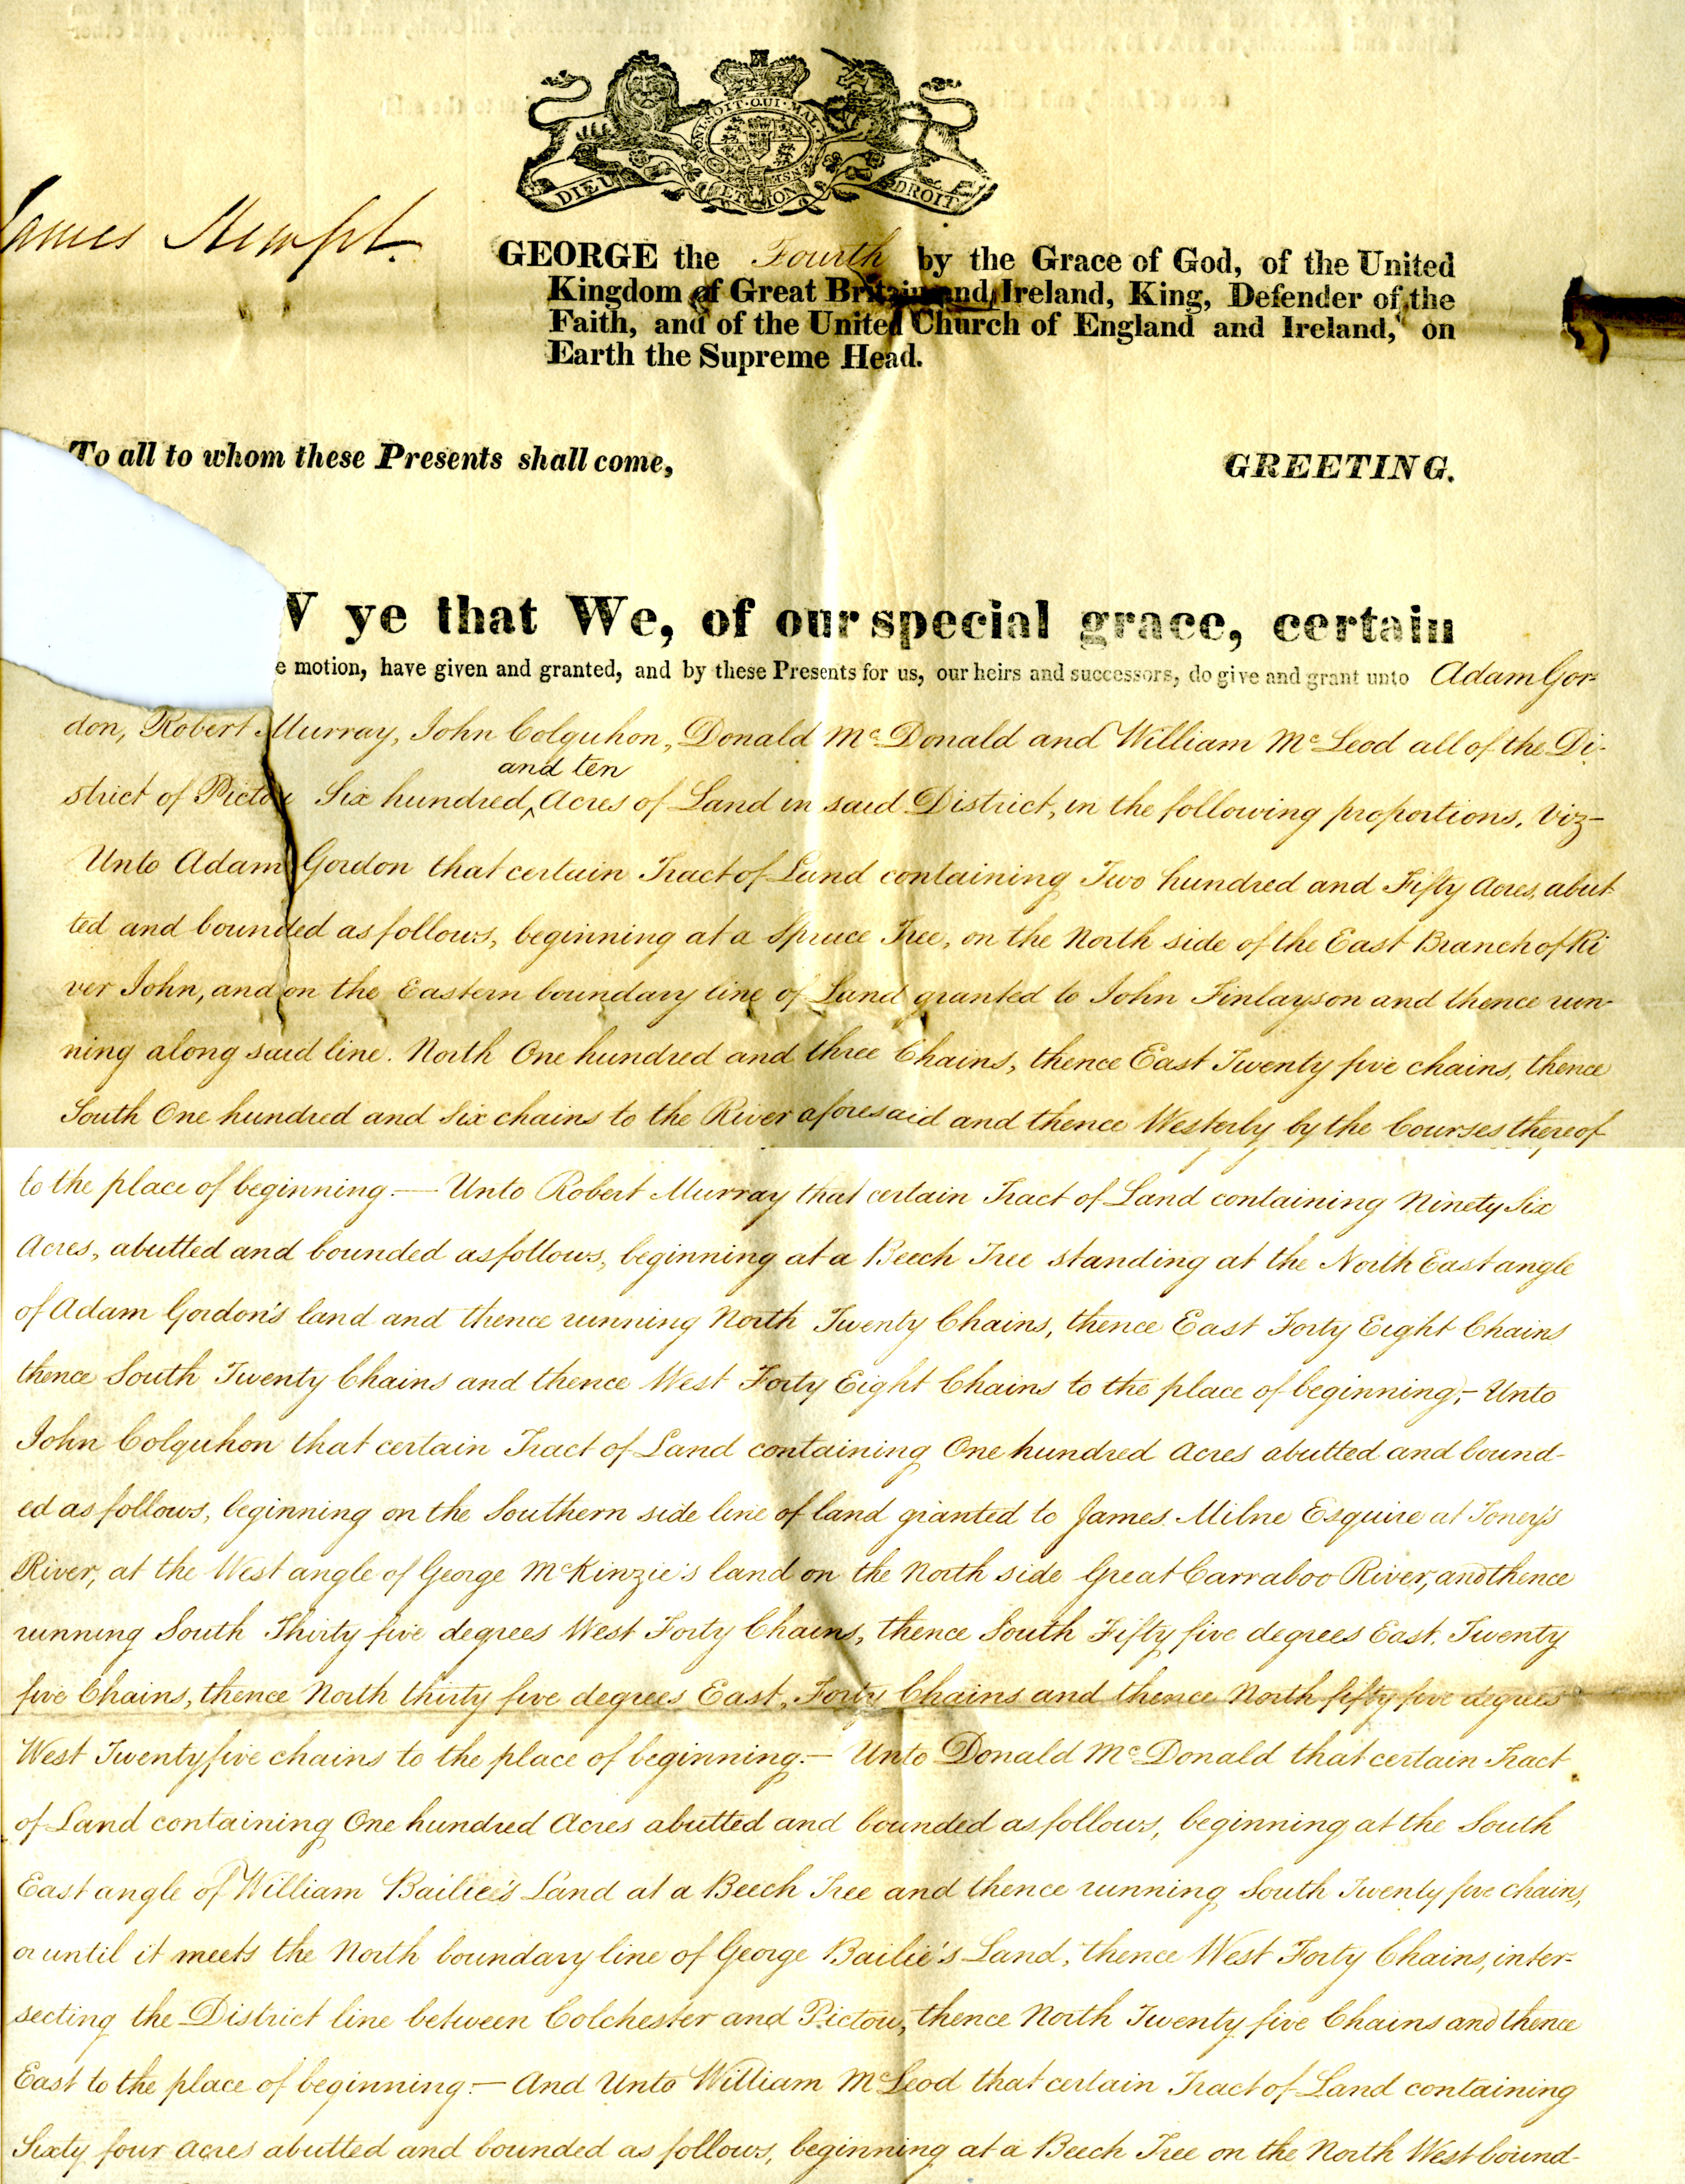 HONI·SOIT·QUI·MAL·
DIEU ET MON DROIT
James Kempt.
GEORGE the Fourth by the Grace of God, of the United
Kingdom of Great Britain and Ireland, King, Defender of the
Faith, and of the United Church of England and Ireland, on
Earth the Supreme Head.
To all to whom these Presents shall come, GREETING.
W ye that We, of our special grace, certain
e motion, have given and granted, and by these Presents for us, our heirs and successors, do give and grant unto Adam Gor=
don, Robert Murray, John Colquhon, Donald Mc Donald and William Mc Leod all of the Di-
and ten
strict of Pictou Six hundred ‸ Acres of Land in said District, in the following proportions, Viz–
Unto Adam Gordon that certain Tract of Land containing Two hundred and Fifty Acres, abut
ted and bounded as follows, beginning at a Spruce Tree, on the North side of the East Branch of Ri
ver John, and on the Eastern boundary line of Land granted to John Finlayson and thence run-
ning along said line. North One hundred and three Chains, thence East Twenty five chains, thence
South One hundred and Six chains to the River aforesaid and thence Westerly by the Courses thereof
to the place of beginning.— Unto Robert Murray that certain Tract of Land containing Ninety Six
Acres, abutted and bounded as follows, beginning at a Beech Tree standing at the North East angle
of Adam Gordon's land and thence running North Twenty Chains, thence East Forty Eight Chains
thence South Twenty Chains and thence West Forty Eight Chains to the place of beginning;– Unto
John Colquhon that certain Tract of Land containing One hundred Acres abutted and bound-
ed as follows, beginning on the Southern side line of land granted to James Milne Esquire at Toney's
River, at the West angle of George McKinzie's land on the North side Great Carraboo River, and thence
running South Thirty five degrees West Forty Chains, thence South Fifty five degrees East, Twenty
five Chains, thence North thirty five degrees East, Forty Chains and thence North fifty five degrees
West Twenty five chains to the place of beginning.– Unto Donald Mc Donald that certain Tract
of Land containing One hundred Acres abutted and bounded as follows, beginning at the South
East angle of William Bailie's Land at a Beech Tree and thence running South Twenty five chains,
or until it meets the North boundary line of George Bailie's Land, thence West Forty Chains, inter-
secting the District line between Colchester and Pictou, thence North Twenty five Chains and thence
East to the place of beginning.– And Unto William McLeod that certain Tract of Land containing
Sixty four acres abutted and bounded as follows, beginning at a Beech Tree on the North West bound-